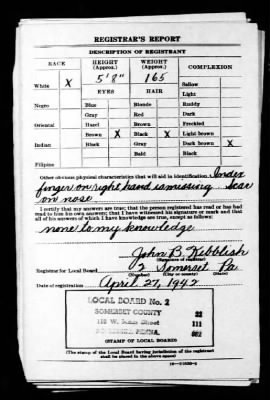 REGISTRAR'S REPORT
DESCRIPTION OF REGISTRANT
RACE
HEIGHT
(Approx.)
WEIGHT
(Approx.)
COMPLEXION
White X
5'8"
165
Sallow
Light
EYES
HAIR
Negro
Blue
Blonde
Ruddy
Gray
Red
Dark
Oriental
Hazel
Brown
Freckled
Brown X
Black X
Light brown
Indian
Black
Gray
Dark brown X
Bald
Black
Filipino
Other obvious physical characteristics that will aid in identification Index
finger on right hand is missing. Scar
on nose
I certify that my answers are true; that the person registered has read or has
had read to him his own answers; that I have witnessed his signature or mark and that
all of his answers of which I have knowledge are true, except as follows:
none to my knowledge
John B. Kebblish
(Signature of registrar)
Registrar for Local Board 2 Somerset Pa.
(Number) (City or county) (State)
Date of registration April 27, 1942
LOCAL BOARD No. 2
SOMERSET COUNTY 22
Street 111
(STAMP OF LOCAL BOARD)
(The stamp of the Local Board having jurisdiction of the registrant
shall be placed in the above space.)